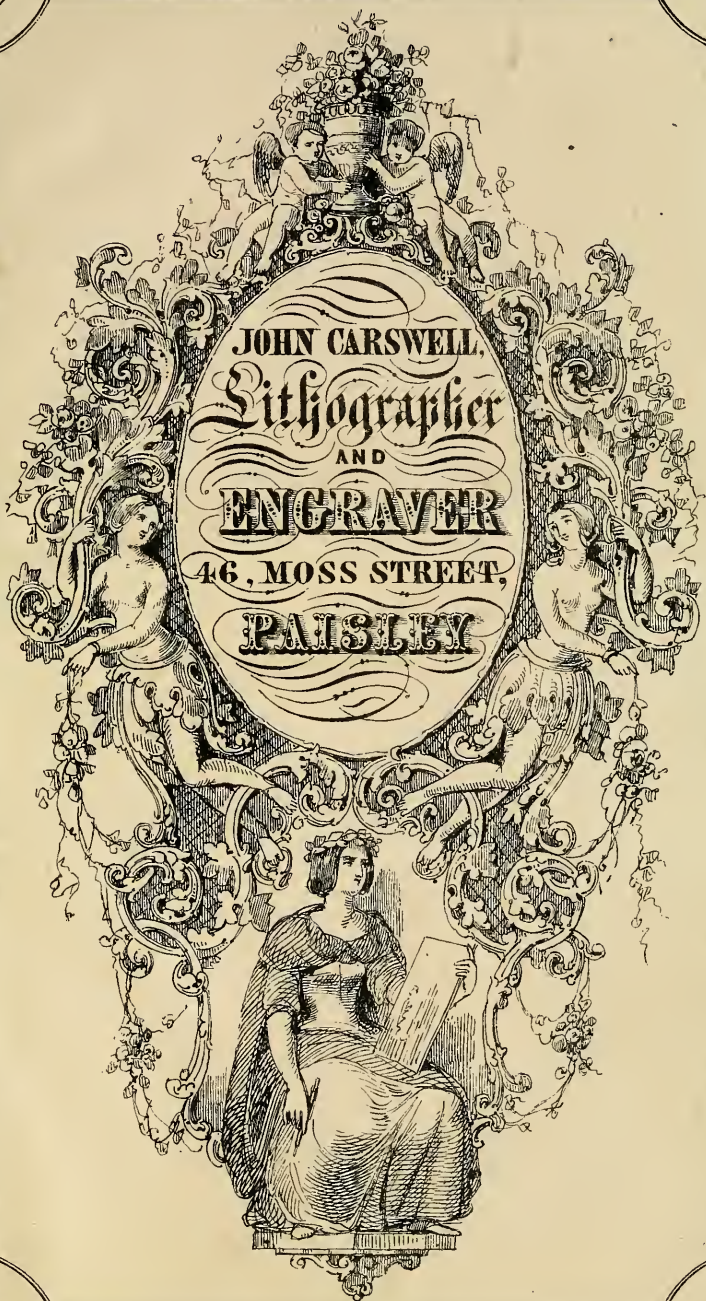 JOHN CARSWELL,
Lithographer
AND
ENGRAVER
46, MOSS STREET,
PAISLEY